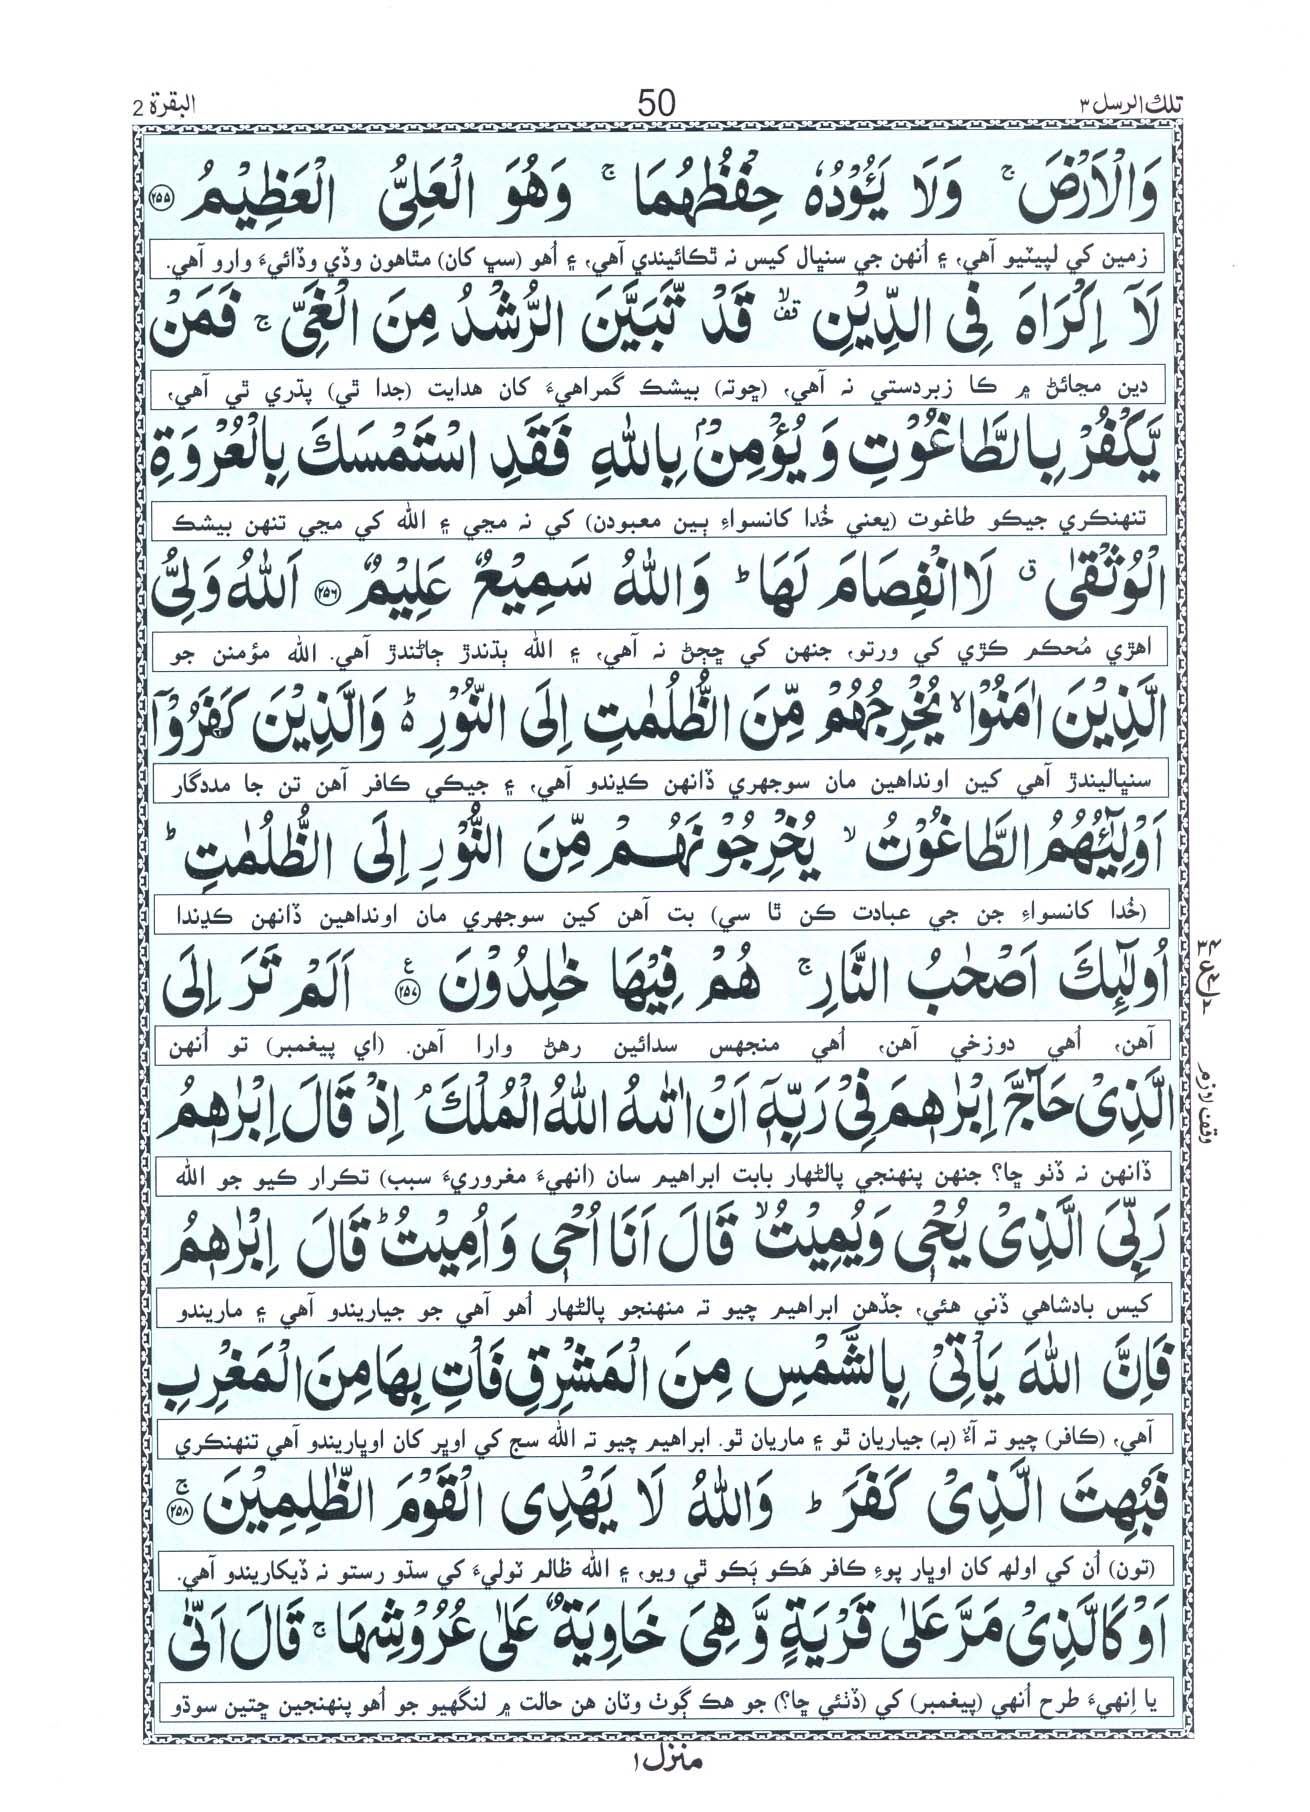 تلك الرسل ٣
50
البقرة 2
وَالْاَرْضَ ۚ وَلَا يَـُٔوْدُهٗ حِفْظُهُمَا ۚ وَهُوَ الْعَلِيُّ الْعَظِيْمُ ﴿۲۵۵﴾
زمين کي لپيٽيو آهي، ۽ اُنهن جي سنڀال کيس نہ ٿڪائيندي آهي، ۽ اُهو (سڀ کان) مٿاهون وڏي وڏائيءَ وارو آهي.
لَآ اِكْرَاهَ فِي الدِّيْنِ ۙ قف قَدْ تَّبَيَّنَ الرُّشْدُ مِنَ الْغَيِّ ۚ فَمَنْ
دين مڃائڻ ۾ ڪا زبردستي نہ آهي، (ڇوتہ) بيشڪ گمراهيءَ کان هدايت (جدا ٿي) پڌري ٿي آهي،
يَّكْفُرْ بِالطَّاغُوْتِ وَيُؤْمِنْۢ بِاللّٰهِ فَقَدِ اسْتَمْسَكَ بِالْعُرْوَةِ
تنهنڪري جيڪو طاغوت (يعني خُدا کانسواءِ ٻين معبودن) کي نہ مڃي ۽ الله کي مڃي تنهن بيشڪ
الْوُثْقٰى ۗ لَا انْفِصَامَ لَهَا ؕ وَاللّٰهُ سَمِيْعٌ عَلِيْمٌ ﴿۲۵۶﴾ اَللّٰهُ وَلِيُّ
اهڙي مُحڪم ڪڙي کي ورتو، جنهن کي ڇڄڻ نہ آهي، ۽ الله ٻڌندڙ ڄاڻندڙ آهي. الله مؤمنن جو
الَّذِيْنَ اٰمَنُوْا ۙ يُخْرِجُهُمْ مِّنَ الظُّلُمٰتِ اِلَى النُّوْرِ ؕ وَالَّذِيْنَ كَفَرُوْٓا
سنڀاليندڙ آهي کين اونداهين مان سوجهري ڏانهن ڪڍندو آهي، ۽ جيڪي ڪافر آهن تن جا مددگار
اَوْلِيٰٓـُٔهُمُ الطَّاغُوْتُ ۙ يُخْرِجُوْنَهُمْ مِّنَ النُّوْرِ اِلَى الظُّلُمٰتِ ؕ
(خُدا کانسواءِ جن جي عبادت ڪن ٿا سي) بت آهن کين سوجهري مان اونداهين ڏانهن ڪڍندا
اُولٰٓئِكَ اَصْحٰبُ النَّارِ ۚ هُمْ فِيْهَا خٰلِدُوْنَ ﴿۲۵۷﴾ ع اَلَمْ تَرَ اِلَى
آهن، اُهي دوزخي آهن، اُهي منجهس سدائين رهڻ وارا آهن. (اي پيغمبر) تو اُنهن
الَّذِيْ حَآجَّ اِبْرٰهٖمَ فِيْ رَبِّهٖٓ اَنْ اٰتٰىهُ اللّٰهُ الْمُلْكَ ۘ اِذْ قَالَ اِبْرٰهٖمُ
وقف لازم
ڏانهن نہ ڏٺو ڇا؟ جنهن پنهنجي پالڻهار بابت ابراهيم سان (انهيءَ مغروريءَ سبب) تڪرار ڪيو جو الله
رَبِّيَ الَّذِيْ يُحْيٖ وَيُمِيْتُ ۙ قَالَ اَنَا اُحْيٖ وَاُمِيْتُ ؕ قَالَ اِبْرٰهٖمُ
کيس بادشاهي ڏني هئي، جڏهن ابراهيم چيو تہ منهنجو پالڻهار اُهو آهي جو جياريندو آهي ۽ ماريندو
فَاِنَّ اللّٰهَ يَاْتِيْ بِالشَّمْسِ مِنَ الْمَشْرِقِ فَاْتِ بِهَا مِنَ الْمَغْرِبِ
آهي، (ڪافر) چيو تہ آءٌ (بہ) جياريان ٿو ۽ ماريان ٿو. ابراهيم چيو تہ الله سج کي اوڀر کان اوڀاريندو آهي تنهنڪري
فَبُهِتَ الَّذِيْ كَفَرَ ؕ وَاللّٰهُ لَا يَهْدِي الْقَوْمَ الظّٰلِمِيْنَ ۚ ﴿۲۵۸﴾
(تون) اُن کي اولهہ کان اوڀار پوءِ ڪافر هَڪو ٻَڪو ٿي ويو، ۽ الله ظالم ٽوليءَ کي سڌو رستو نہ ڏيکاريندو آهي.
اَوْ كَالَّذِيْ مَرَّ عَلٰى قَرْيَةٍ وَّهِيَ خَاوِيَةٌ عَلٰى عُرُوْشِهَا ۚ قَالَ اَنّٰى
يا اِنهيءَ طرح اُنهي (پيغمبر) کي (ڏٺئي ڇا؟) جو هڪ ڳوٺ وٽان هن حالت ۾ لنگهيو جو اُهو پنهنجين ڇتين سوڌو
منزل ١